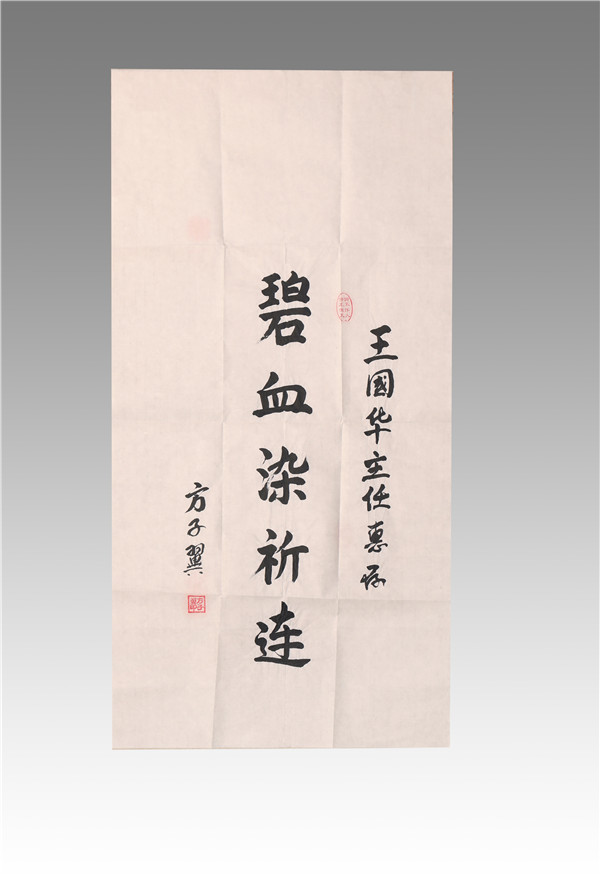 王國华主任惠存
碧血染祈连
方子翼